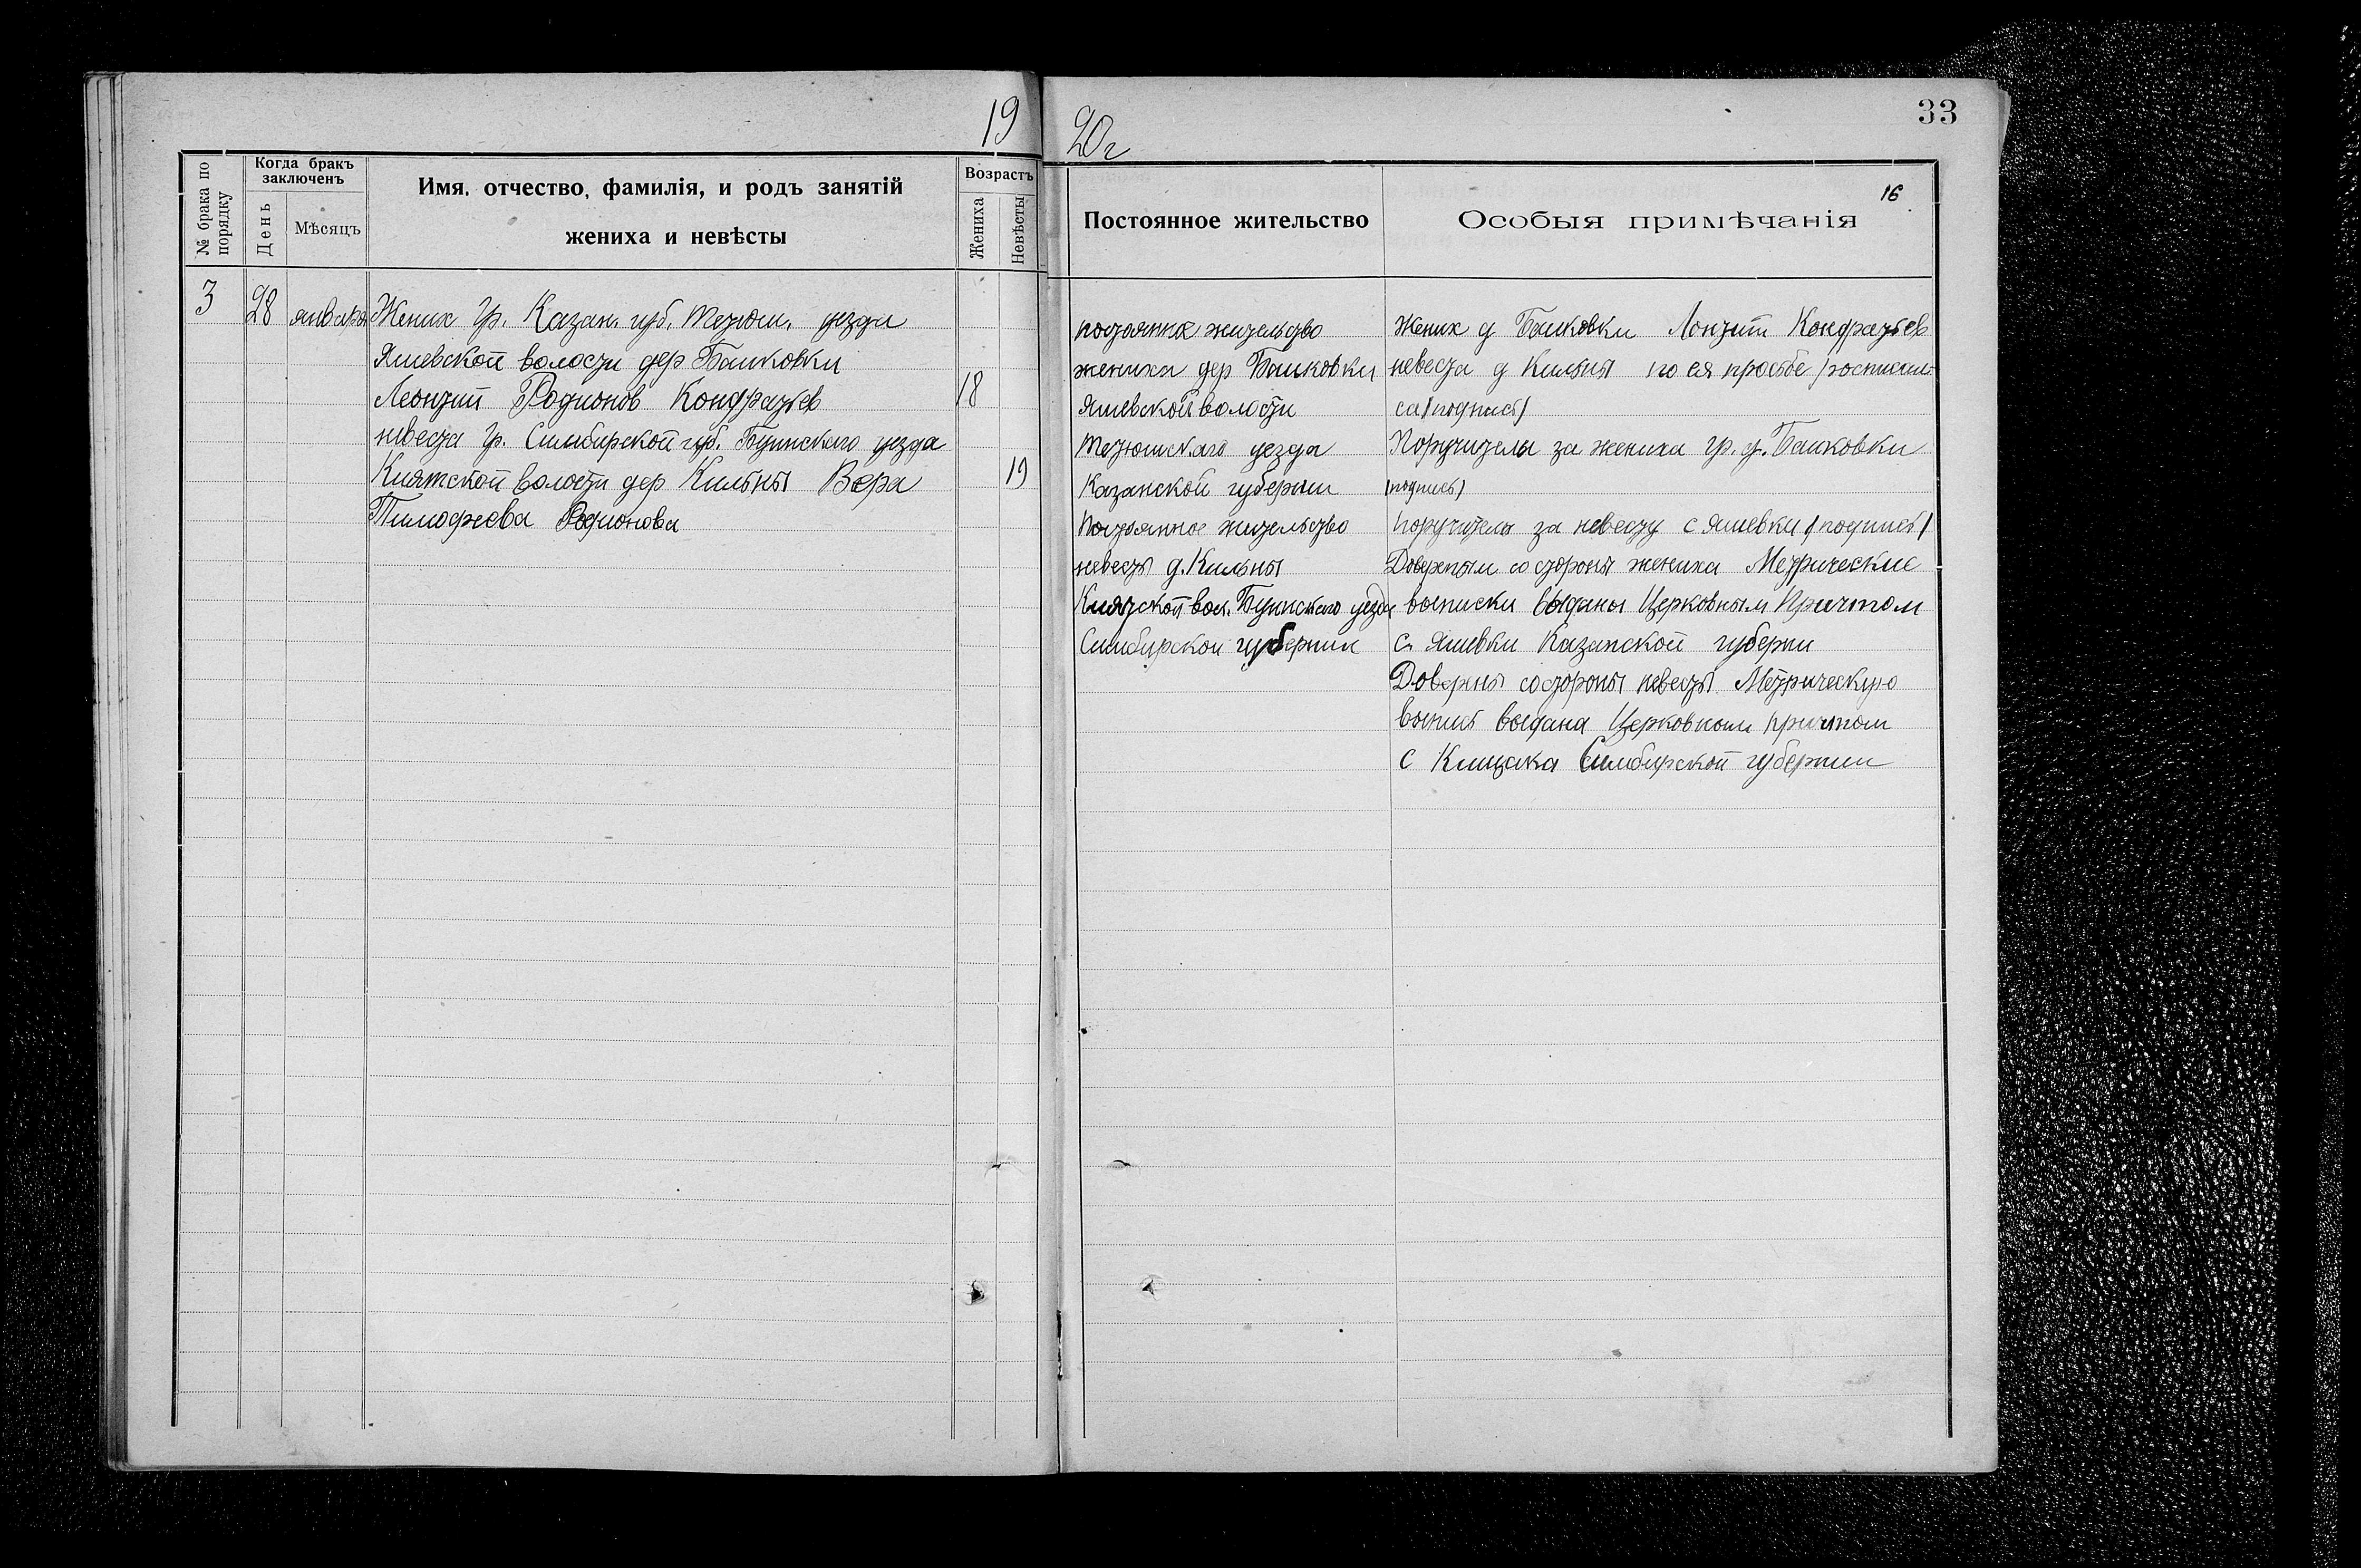 19
20 г
33
16
№ брака по порядку
Когда бракъ заключенъ
День
Мѣсяцъ
Имя, отчество, фамилія, и родъ занятій
жениха и невѣсты
Возрастъ
Жениха
Невѣсты
Постоянное жительство
Особыя примѣчанія
3 28 января Жених гр. Казан. губ. Тетюш. уезда
Яшевской волости дер Башковки
Леонтий Родионов Кондратьев 18
невеста гр. Симбирской губ. Буинского уезда
Киятской волости дер Кильны Вера 19
Тимофеева Родионова
постоянна жительство
жениха дер Башковки
Яшевской волости
Тетюшскаго уезда
Казанской губернии
Постоянное жительство
невесты д. Кильны
Киятской вол. Буинского уезда
Симбирской губернии
Жених д Башковки Лонтит Кондратьев
невеста д Кильны по ея просьбе росписал-
са (подпись)
Поручитель за жениха гр. д. Башковки
(подпись)
поручитель за невесту с Яшевки (подпись)
со стороны жениха Метрические
выписки выданы Церковным Причтом
с. Яшевки Казанской губерни
со стороны невесты Метрическую
выпись выдана Церковным причтом
с Симбирской губернии